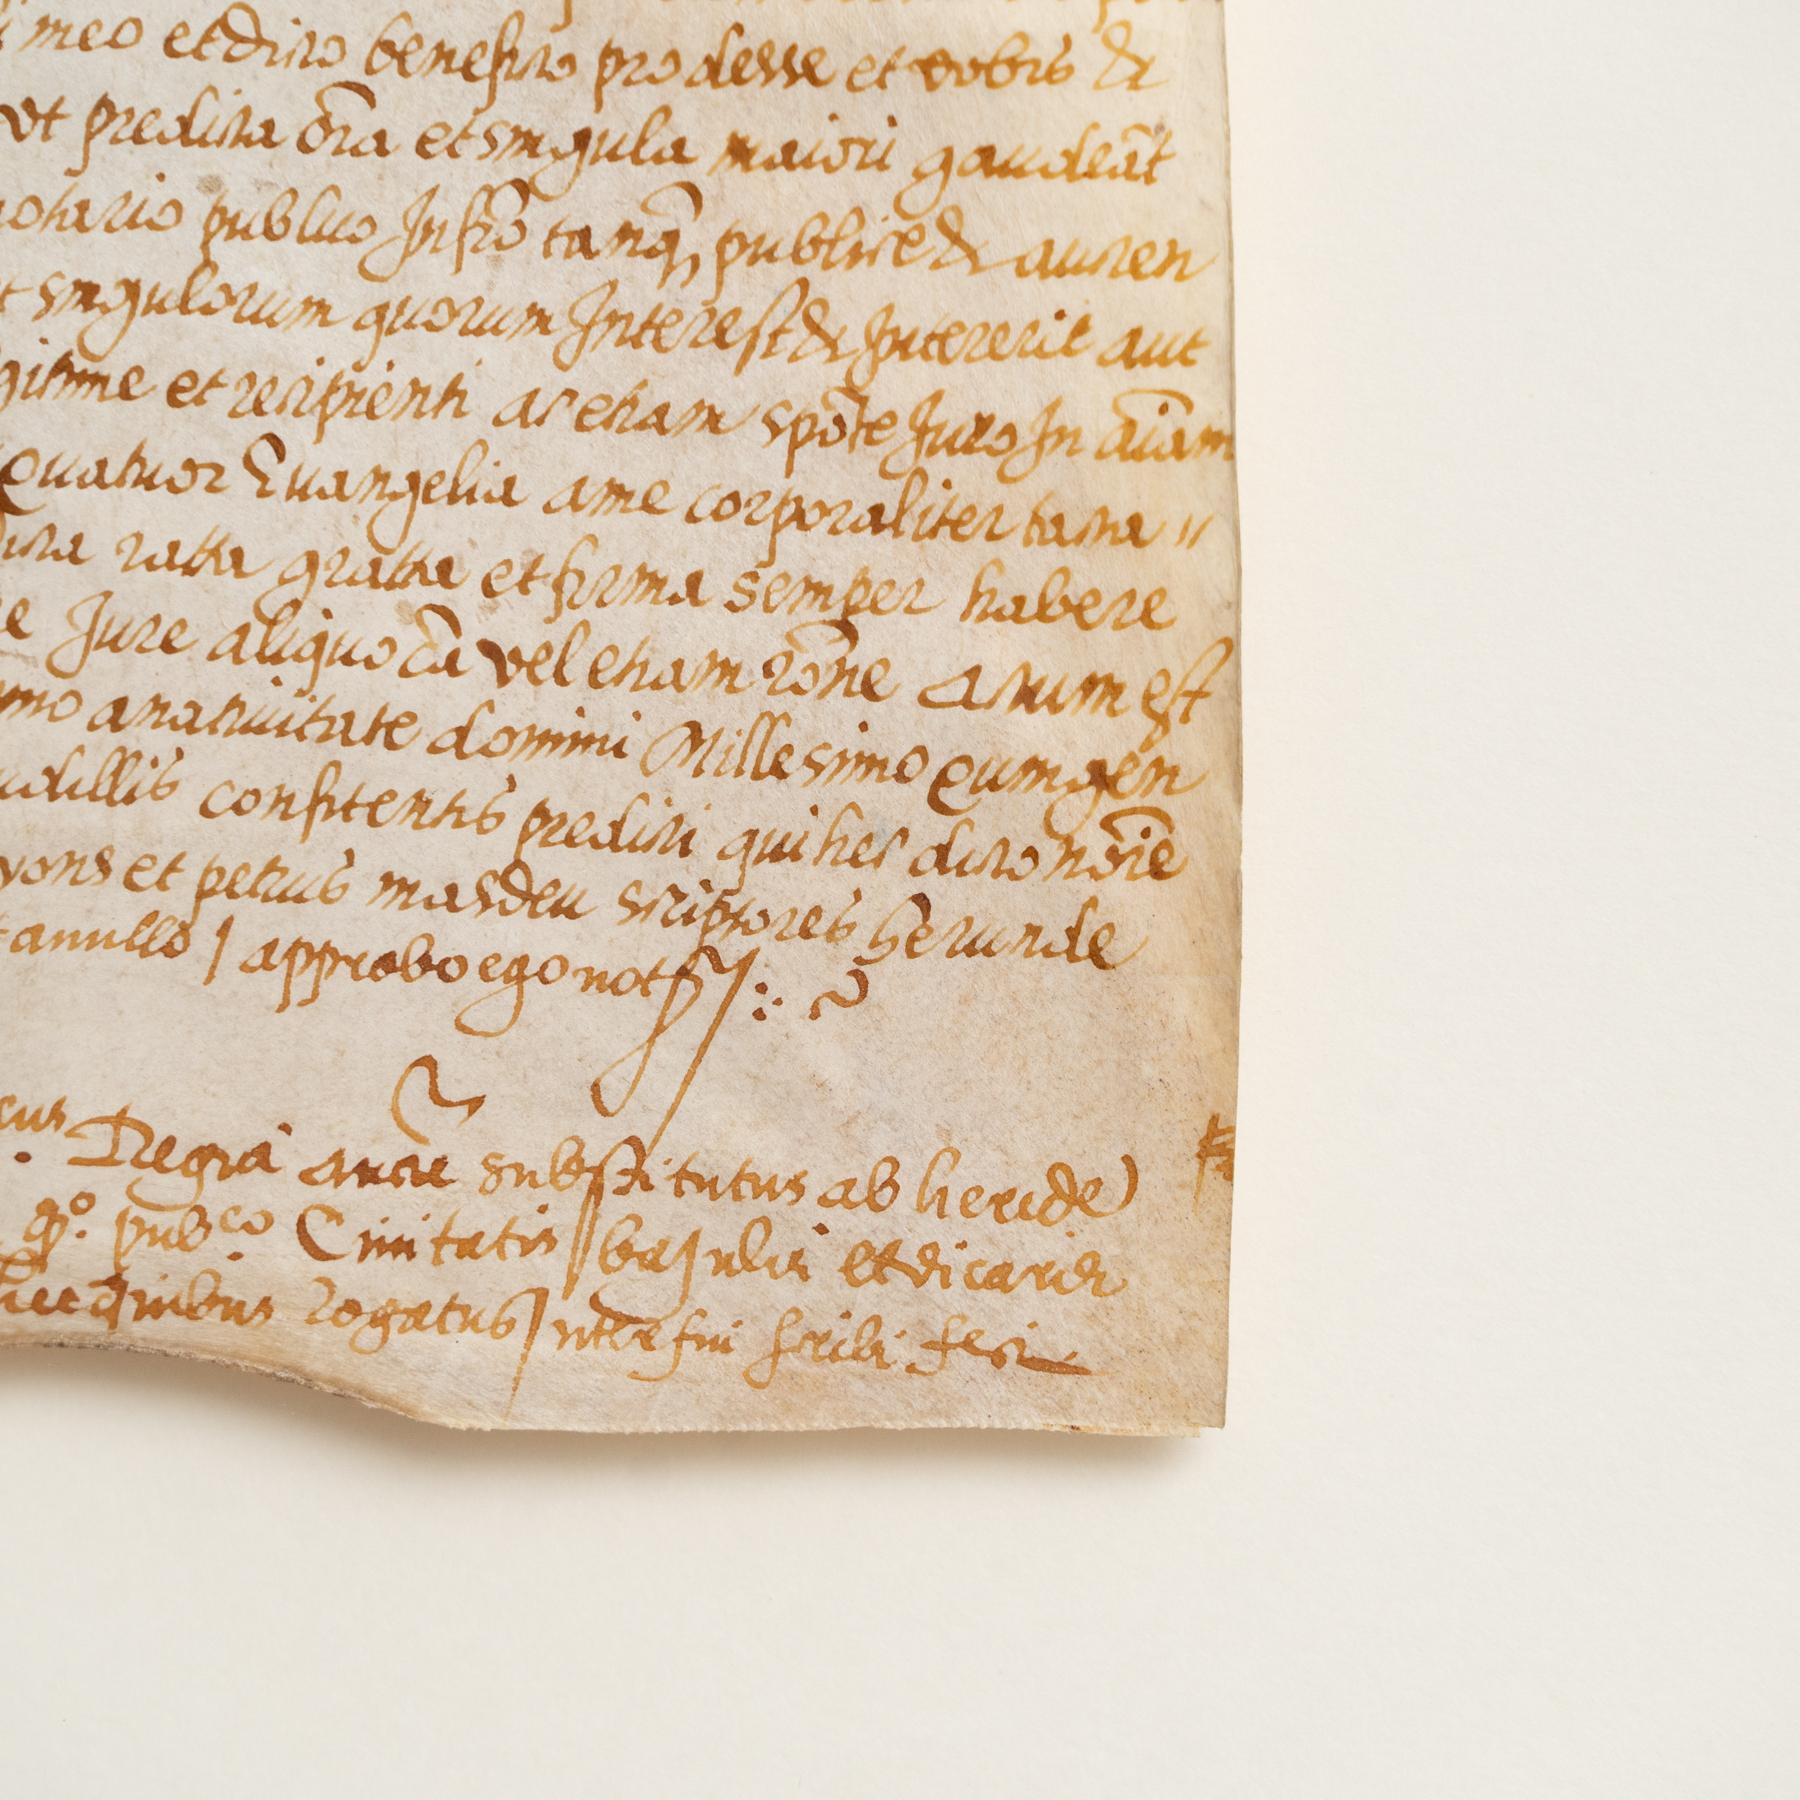 meo et dicto beneficio prodesse et vobis &
vt predicta oĩa et singula maiori gaudeãt
notario publico Infrõ tanq̃ publice & auten
t singulorum quorum Interest & Intererit aut
gitime et recipienti ac etiam spõte Juro In aĩam
quatuor Euangelia ame corporaliter tacta "
dicta ratta gratta et firma semper habere
e Jure aliquo cã vel etiam rõne Actum est
mo anatiuitate domini Millesimo quingen
udillis confitentis predicti qui hec dicto nõie
yons et petrus masdeu scriptores Gerunde
t anullo / approbo ego not
cus Regia aucte substitutus ab herede
pub.co Ciuitatis bajulie et vicarie
hec quibus rogatus interfui scribi feci